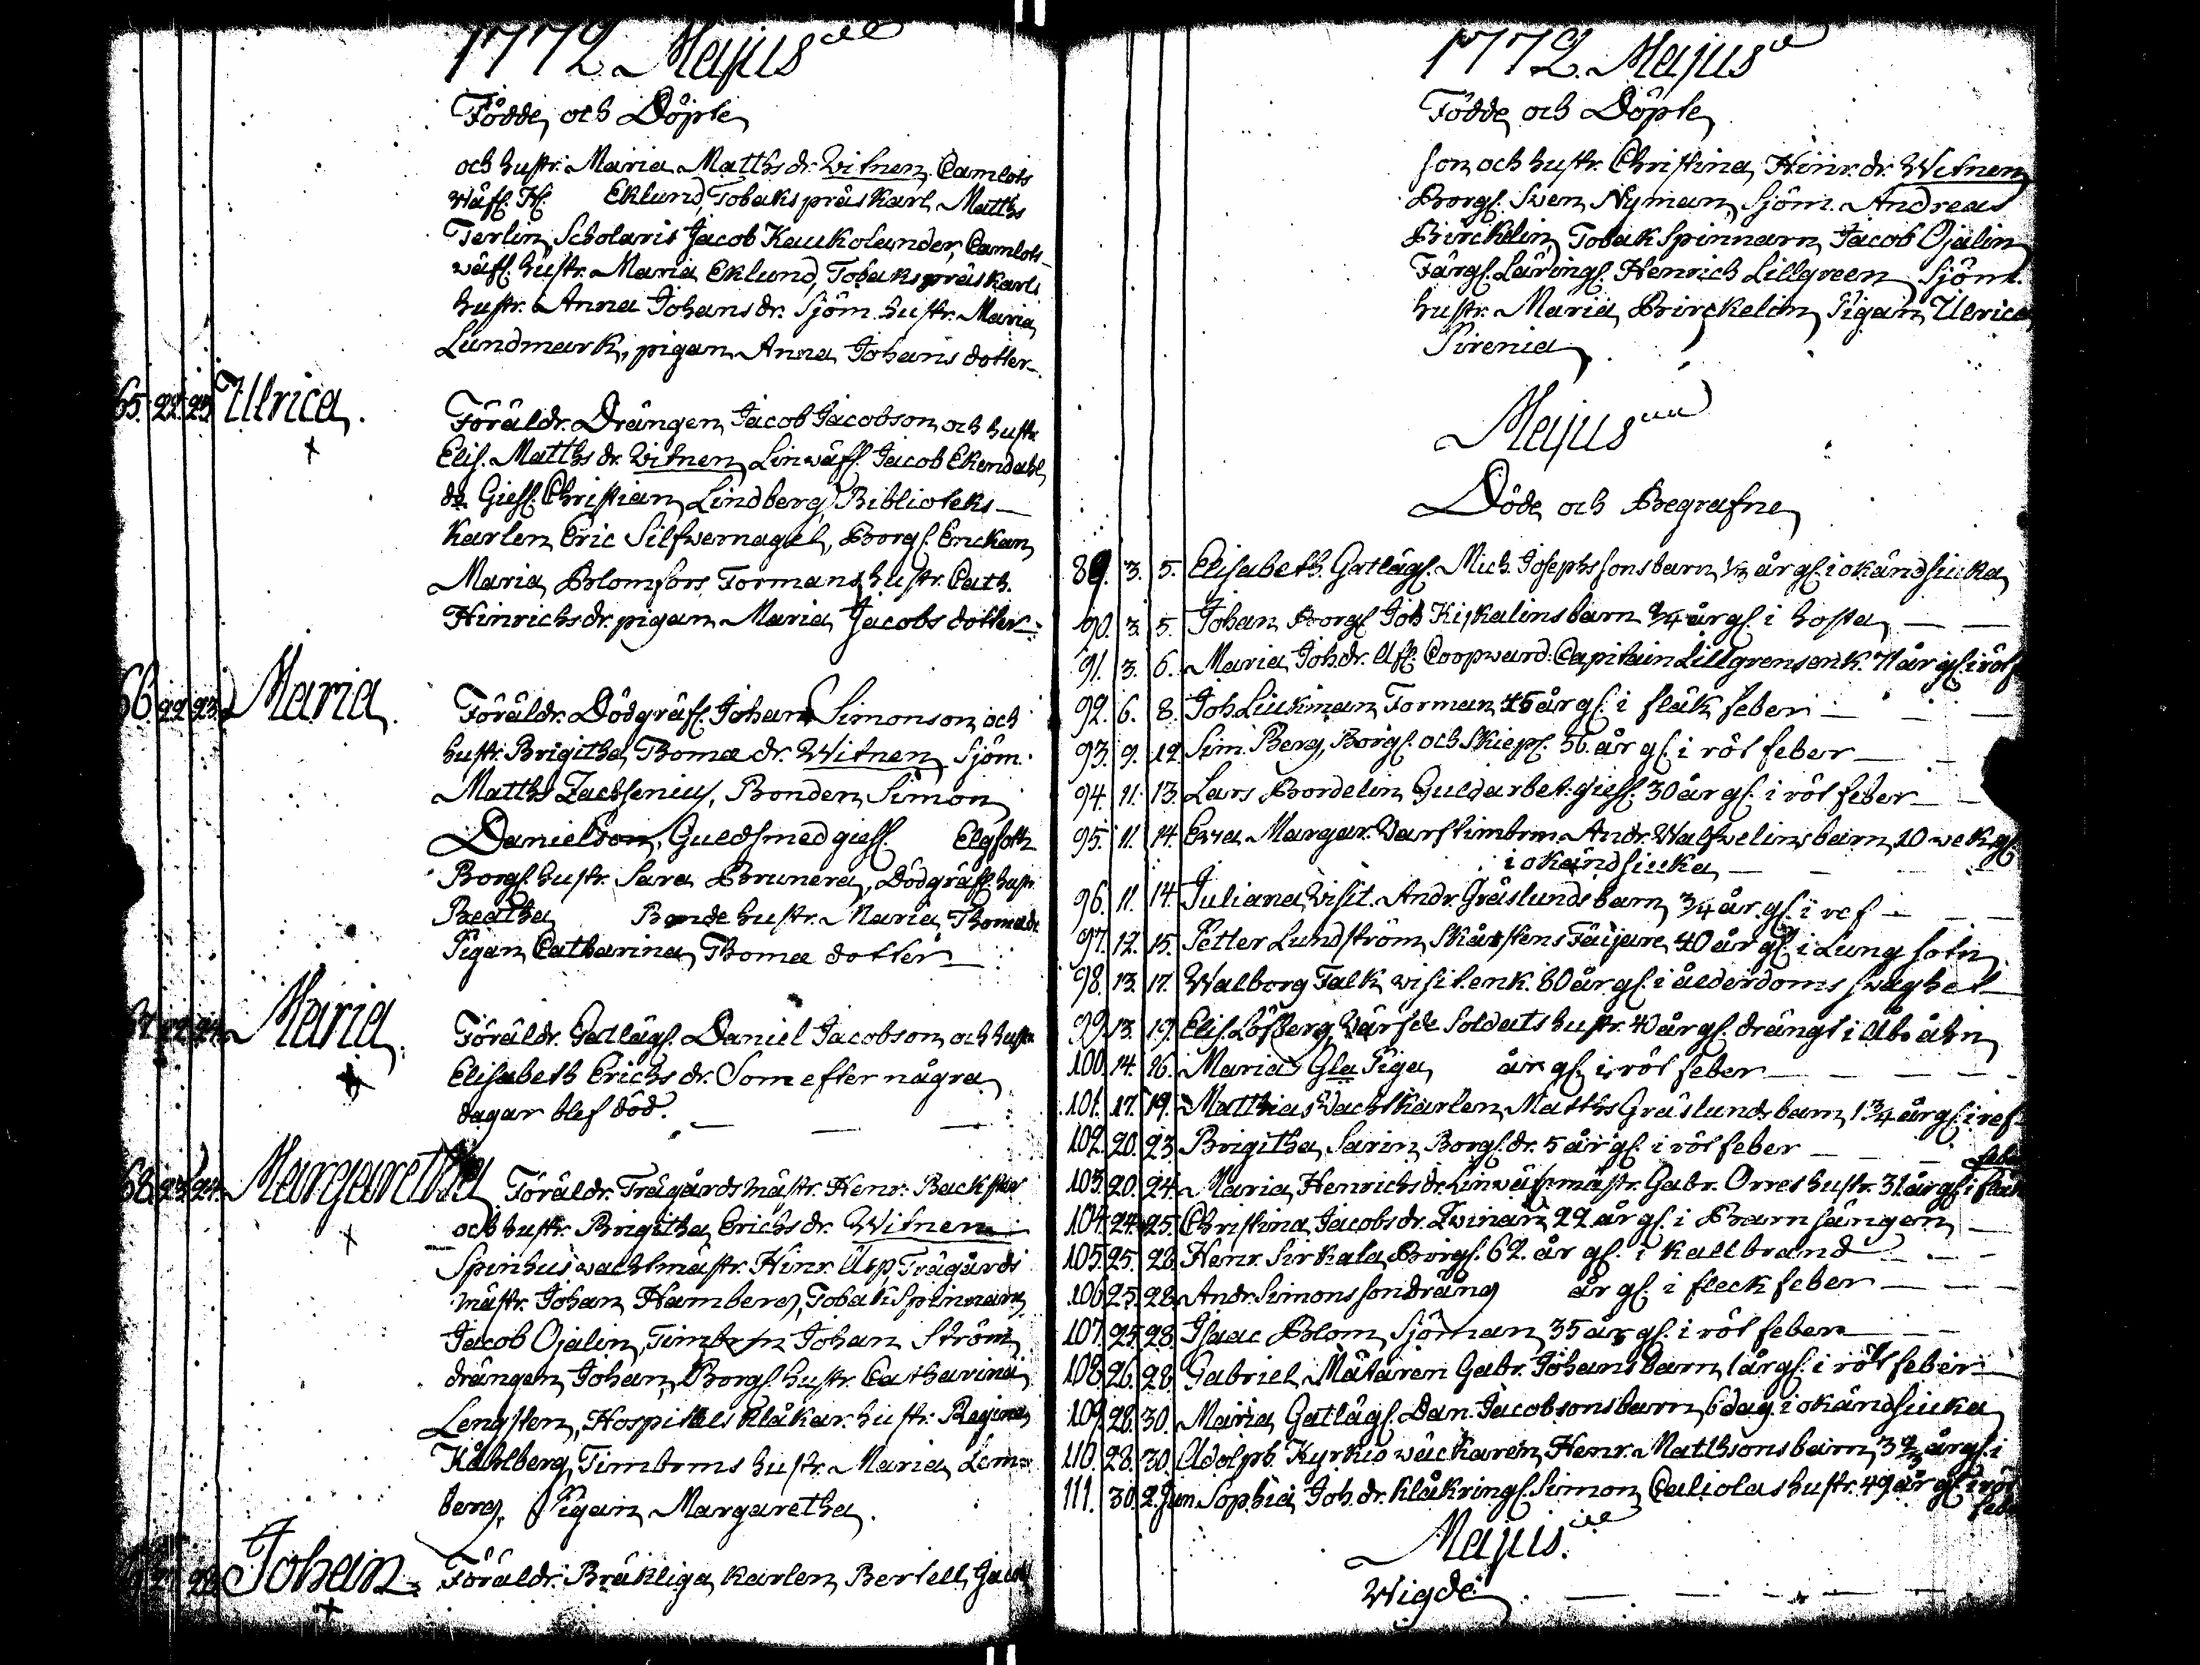 1772 Majus
Födde och Döpte
och hustr. Maria Matths dr. Witnen Camlots
wäfv. H. Eklund, Tobaks präs karl Matths
Terlin, Scholaris Jacob Kaukolander, Camlots
wäfv. hustr. Maria Eklund, Tobaks präs karls
hustr. Anna Johans dr. Sjöm. hustr. Maria
Lundmark, pigan Anna Johans dotter.
65. 22 23 Ulrica.
Föräldr. Drängen Jacob Jacobson och hustr
Elis. Matths dr. Witnen Linwäfv. Jacob Ekendahl
do Gesl. Christian Lindberg, Biblioteks
karlen Eric Silfwernagel, Borgs. Enckan
Maria Blomfors, Formans hustr. Cath.
Hinrichs dr. pigan Maria Jacobs dotter.
66. 22 23 Maria.
Föräldr. Dödgräfv. Johan Simonson och
hustr. Brigitha Thomæ dr. Witnen Sjöm.
Matths Zachsenius, Bonden Simon
Danielson, Guldsmed gesl. Elgfoth
Borgs. hustr. Sara Brunera, Dödgräfv. hustr.
Beatha Bonde hustr. Maria Thomædr
Pigan Catharina Thomæ dotter
67 22 24 Maria.
Föräldr. Gatlägs. Daniel Jacobson och hustr
Elisabeth Erichs dr. Som efter några
dagar blef död.
68 23 24 Margaretha
Föräldr. Trägårdsmästr. Henr. Backster
och hustr. Brigitha Erichs dr. Witnen
Spinhus wachtmästr. Hinr. Asp, Trägårds
mästr. Johan Hamberg, Tobak Spinnaren
Jacob Ojalin, Timbrm Johan Ström,
drängen Johan, Borgs. hustr. Catharina
Lengsten, Hospitals klåkar. hustr. Regina
Kåhlberg, Timbrms hustr. Maria Lem-
berg. Pigan Margaretha.
28 Johan
Föräldr. Bräkliga karlen Bertell Jacob
1772. Majus
Födde och Döpte
son och hustr. Christina Hinr. dr. Witnen
Borgs. Swen Nyman, Sjöm. Andreas
Birckelin, Tobak Spinnarn Jacob Ojalin
Färgs. Läringsl. Henrich Lillgreen, Sjöm.
hustr. Maria Birckelin, Pigan Ulrica
Sirenia
Majus
Döde och Begrafne
89. 3. 5. Elisabeth. Gatlägs. Mich. Josephs sons barn 1/3 år gl. i okänd siuka
90. 3. 5. Johan Borgs. Joh Kiskalins barn 3/4 år gl. i hosta
91. 3. 6. Maria Joh. dr. Afl. Coopward. Capitain Lillgrens enk. 71 år gl. i röt f
92. 6. 8. Joh. Liukman Forman 45 år gl. i fläk feber
93. 9. 12 Sim. Berg, Borgs. och Skiep. 56 år gl. i röt feber
94. 11. 13. Lars Bordelin Guldarbet. gesl. 30 år gl. i röt feber
95. 11. 14. Ewa Margar. Warfstimbrm. Andr. Walfwelins barn, 10 wek. gl.
i okänd siuka
96. 11. 14. Juliana Visit. Andr. Gråslunds barn, 3/4 år gl. i ref
97. 12. 15. Petter Lundström Skårstens Fäijare 40 år gl. i Lung sotn
98. 13. 17. Walborg Falk visit. enk. 80 år gl. i ålderdoms swaghet
99. 13. 17. Elis. Löfberg, Wärfde Soldats hustr. 40 år gl. drängt i Åbo åhn
100. 14. 26. Maria Gla Piga år gl. i röt feber
101. 17. 19. Matthias Wachtkarlen Matths Gråslunds barn, 1 3/4 år gl. i ref
102. 20. 23. Brigitha Sarin, Borgs. dr. 5 år gl. i röt feber
103. 20. 24. Maria Henrichs dr. Linwäfv. mästr. Gabr. Orres hustr. 31 år gl. i fläk
feber
104. 24. 25. Christina Jacobs dr. Qwinan 22 år gl. i Barnsängen
105. 25. 28. Henr. Sirkala Borgs. 62. år gl. i kallbrand
106 25. 28. Andr. Simons son dräng år gl. i fleck feber
107. 25. 28. Isaac Blom Sjöman, 35 år gl. i röt feber
108. 26. 28. Gabriel Mätaren Gabr. Johans barn 1 år gl. i röt feber
109. 28. 30. Maria Gatlägs. Dan. Jacobsons barn, 6 dag. i okänd siuka
110. 28. 30. Adolph. Kyrkio wäckaren Henr. Matthsons barn, 3 år gl. i
111. 30. 2 Jun Sophia Joh. dr. Klåkringsl. Simon Caliolas hustr. 49 år gl. i röt
feb
Majus.
Wigde